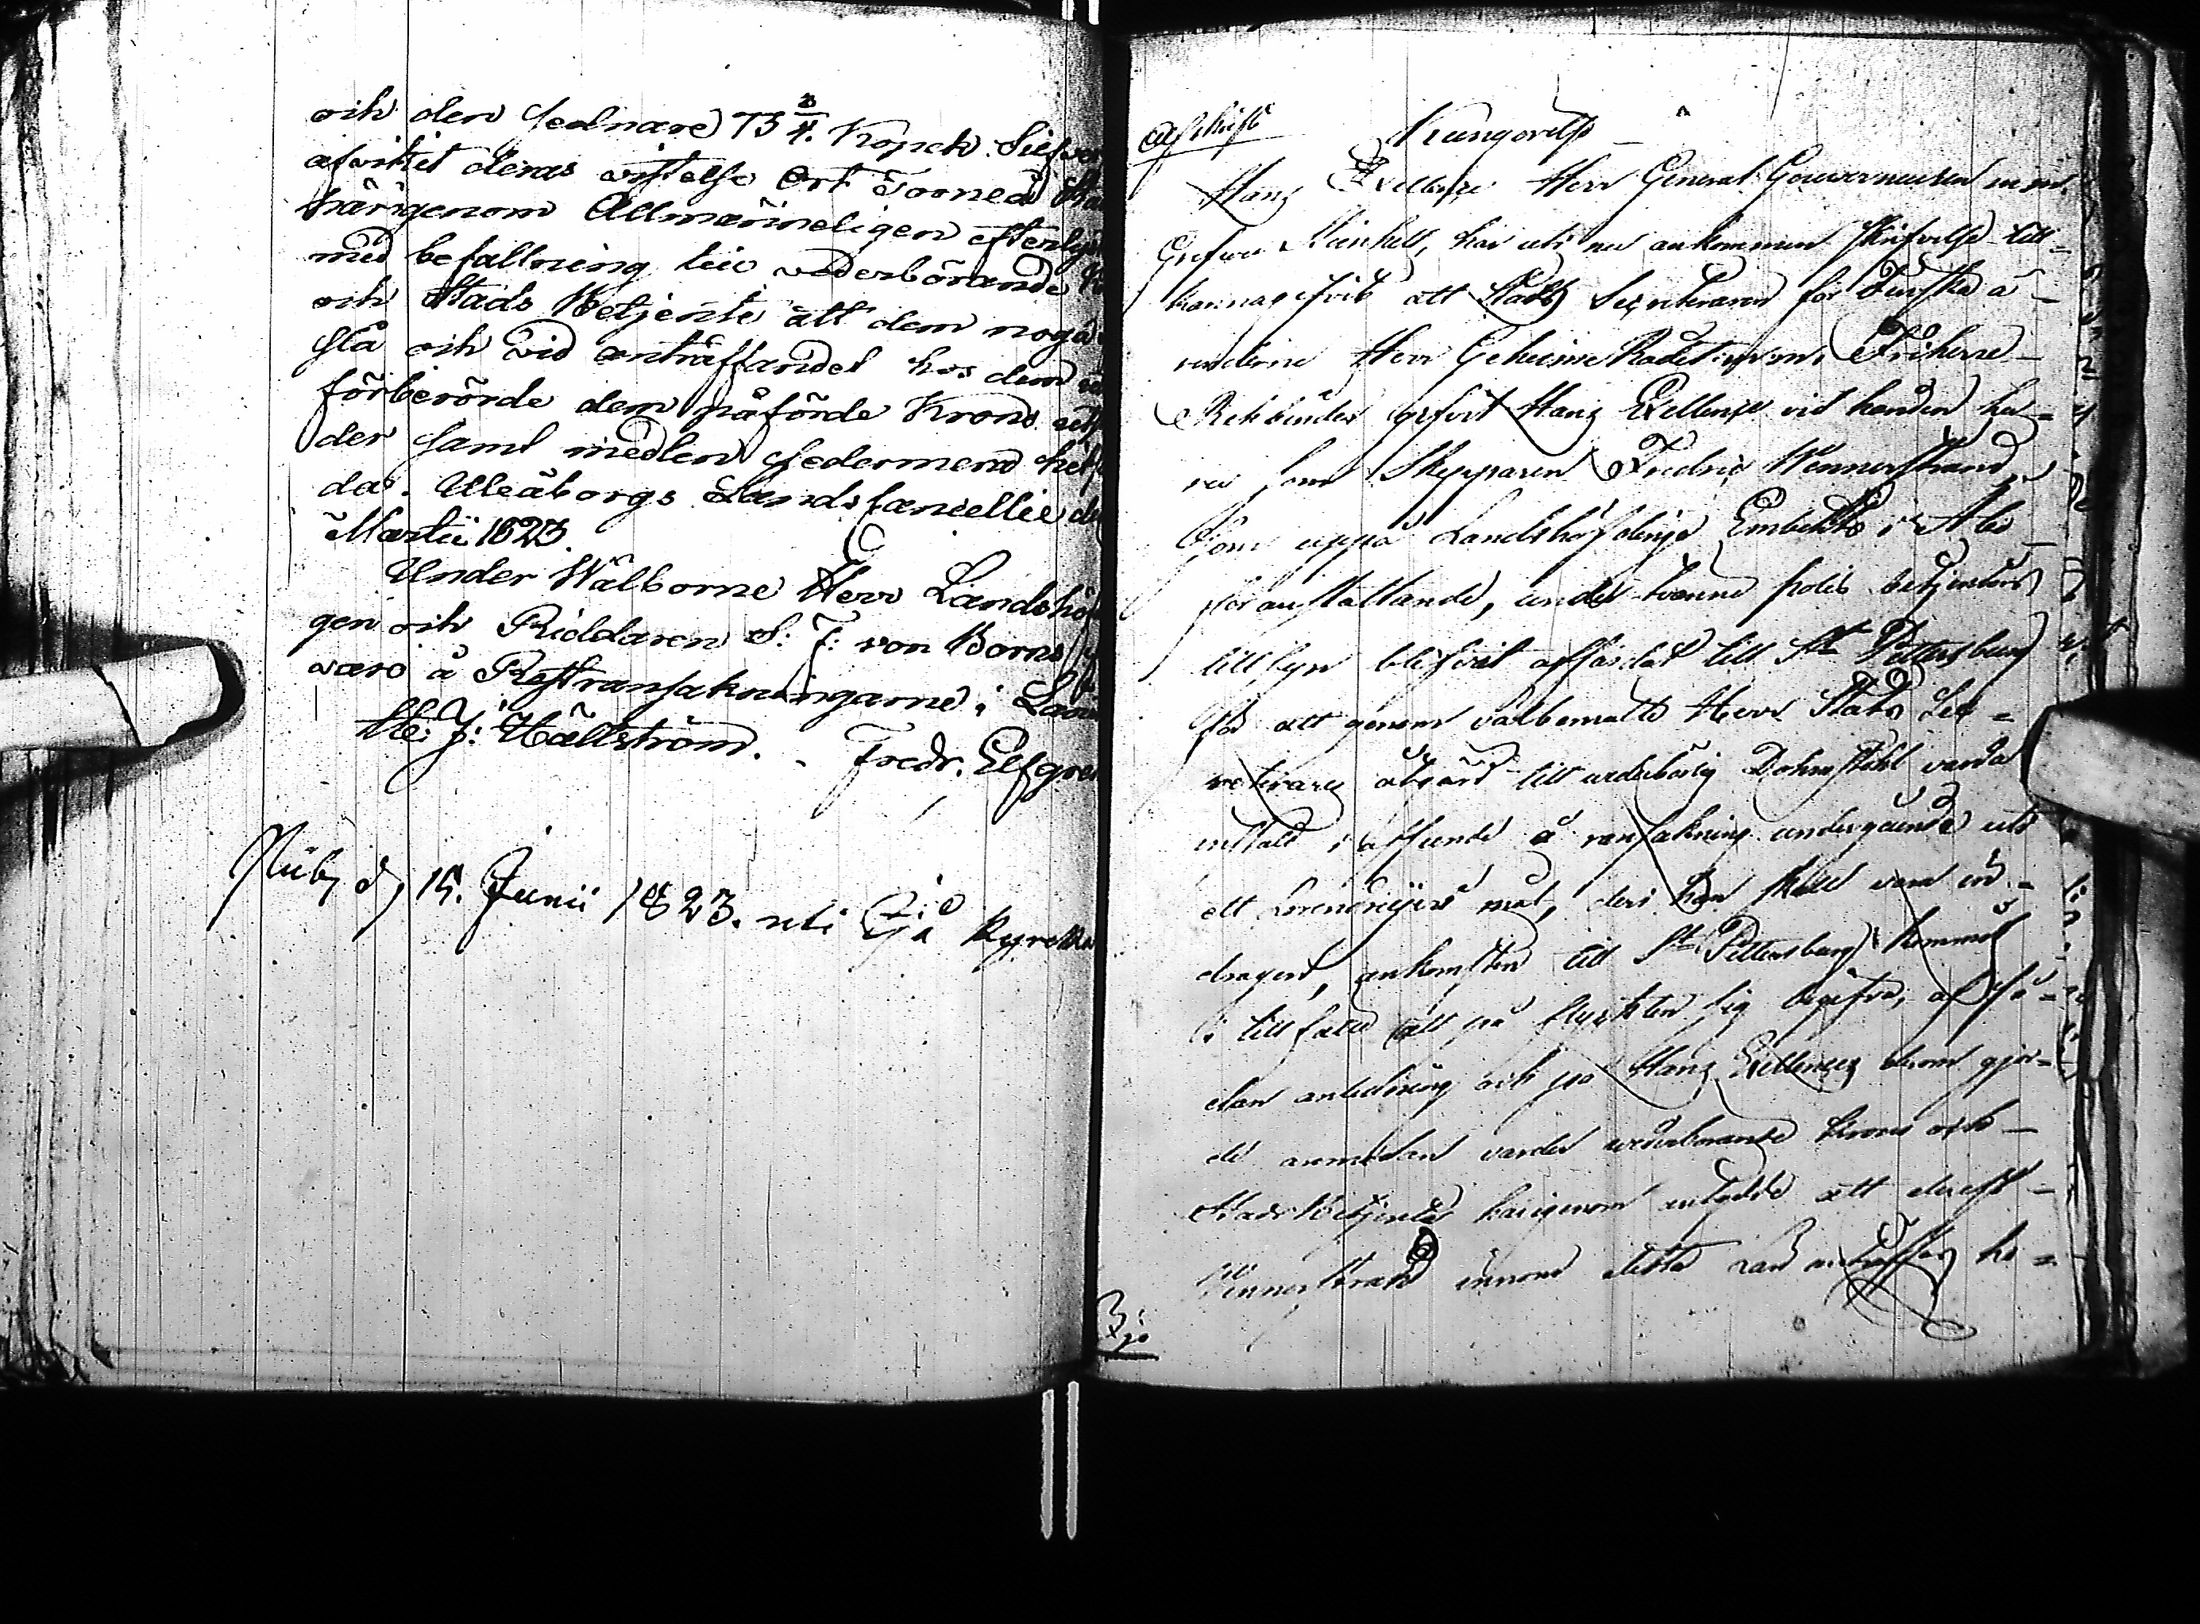 och den sednare 73 3/4. Kopek Silfver
afvikit deras vistelse Ort Torneå Stad
härigenom Allmänneligen efterly
med befallning till vederbörande K
och Stads Betjente att dem noga
slå och vid anträffandet hos dem
förberörde dem påförde Krono
der samt medlen hit
da. Uleåborgs Lands Cancellie d
Martii 1823.
Under Wälborne Herr Landshöf
gen och Riddaren S: F: von Borns
varo å Rest ransakningarne i Län
M: J: Hällström. Fredr. Elfgren
d 15. Junii 1823. uti Kyrkka
Afskrift Kungörelse
Hans Exellence Herr General Gouverneuren m m.
Grefve Steinheil, har uti nu ankommen skrifvelse till-
kännagifvit att Stats Secreteraren för Finska ä-
renderne Herr Geheime Rådet m m. Friherre
Rehbinder gifvit Hans Exellence vid handen hu-
ru som Skepparen Fredric Wennerstrand,
som uppå Landshöfdinge Embetets i Åbo
föranstaltande, under tvenne polis betjenters
tillsyn blifvit affärdat till St Pettersburg
för att genom välbemälte Herr Stats Sec-
reterares åtgärd till vederbörlig Domstohl varda
inställd i afseende å ransaknings undergående uti
ett Lurendrejeri mål, deri han skall vara in-
dragen, ankomsten till St Pettersburg kommit
i tillfälle att på flykten sig begifva, af så-
dan anledning och på Hans Exellences derom gjor-
de anmälan varder vederbörande Krono och
Stads Betjenter härigenom anbefalde att derest
Wennerstrand innom detta Län anträffas ho-